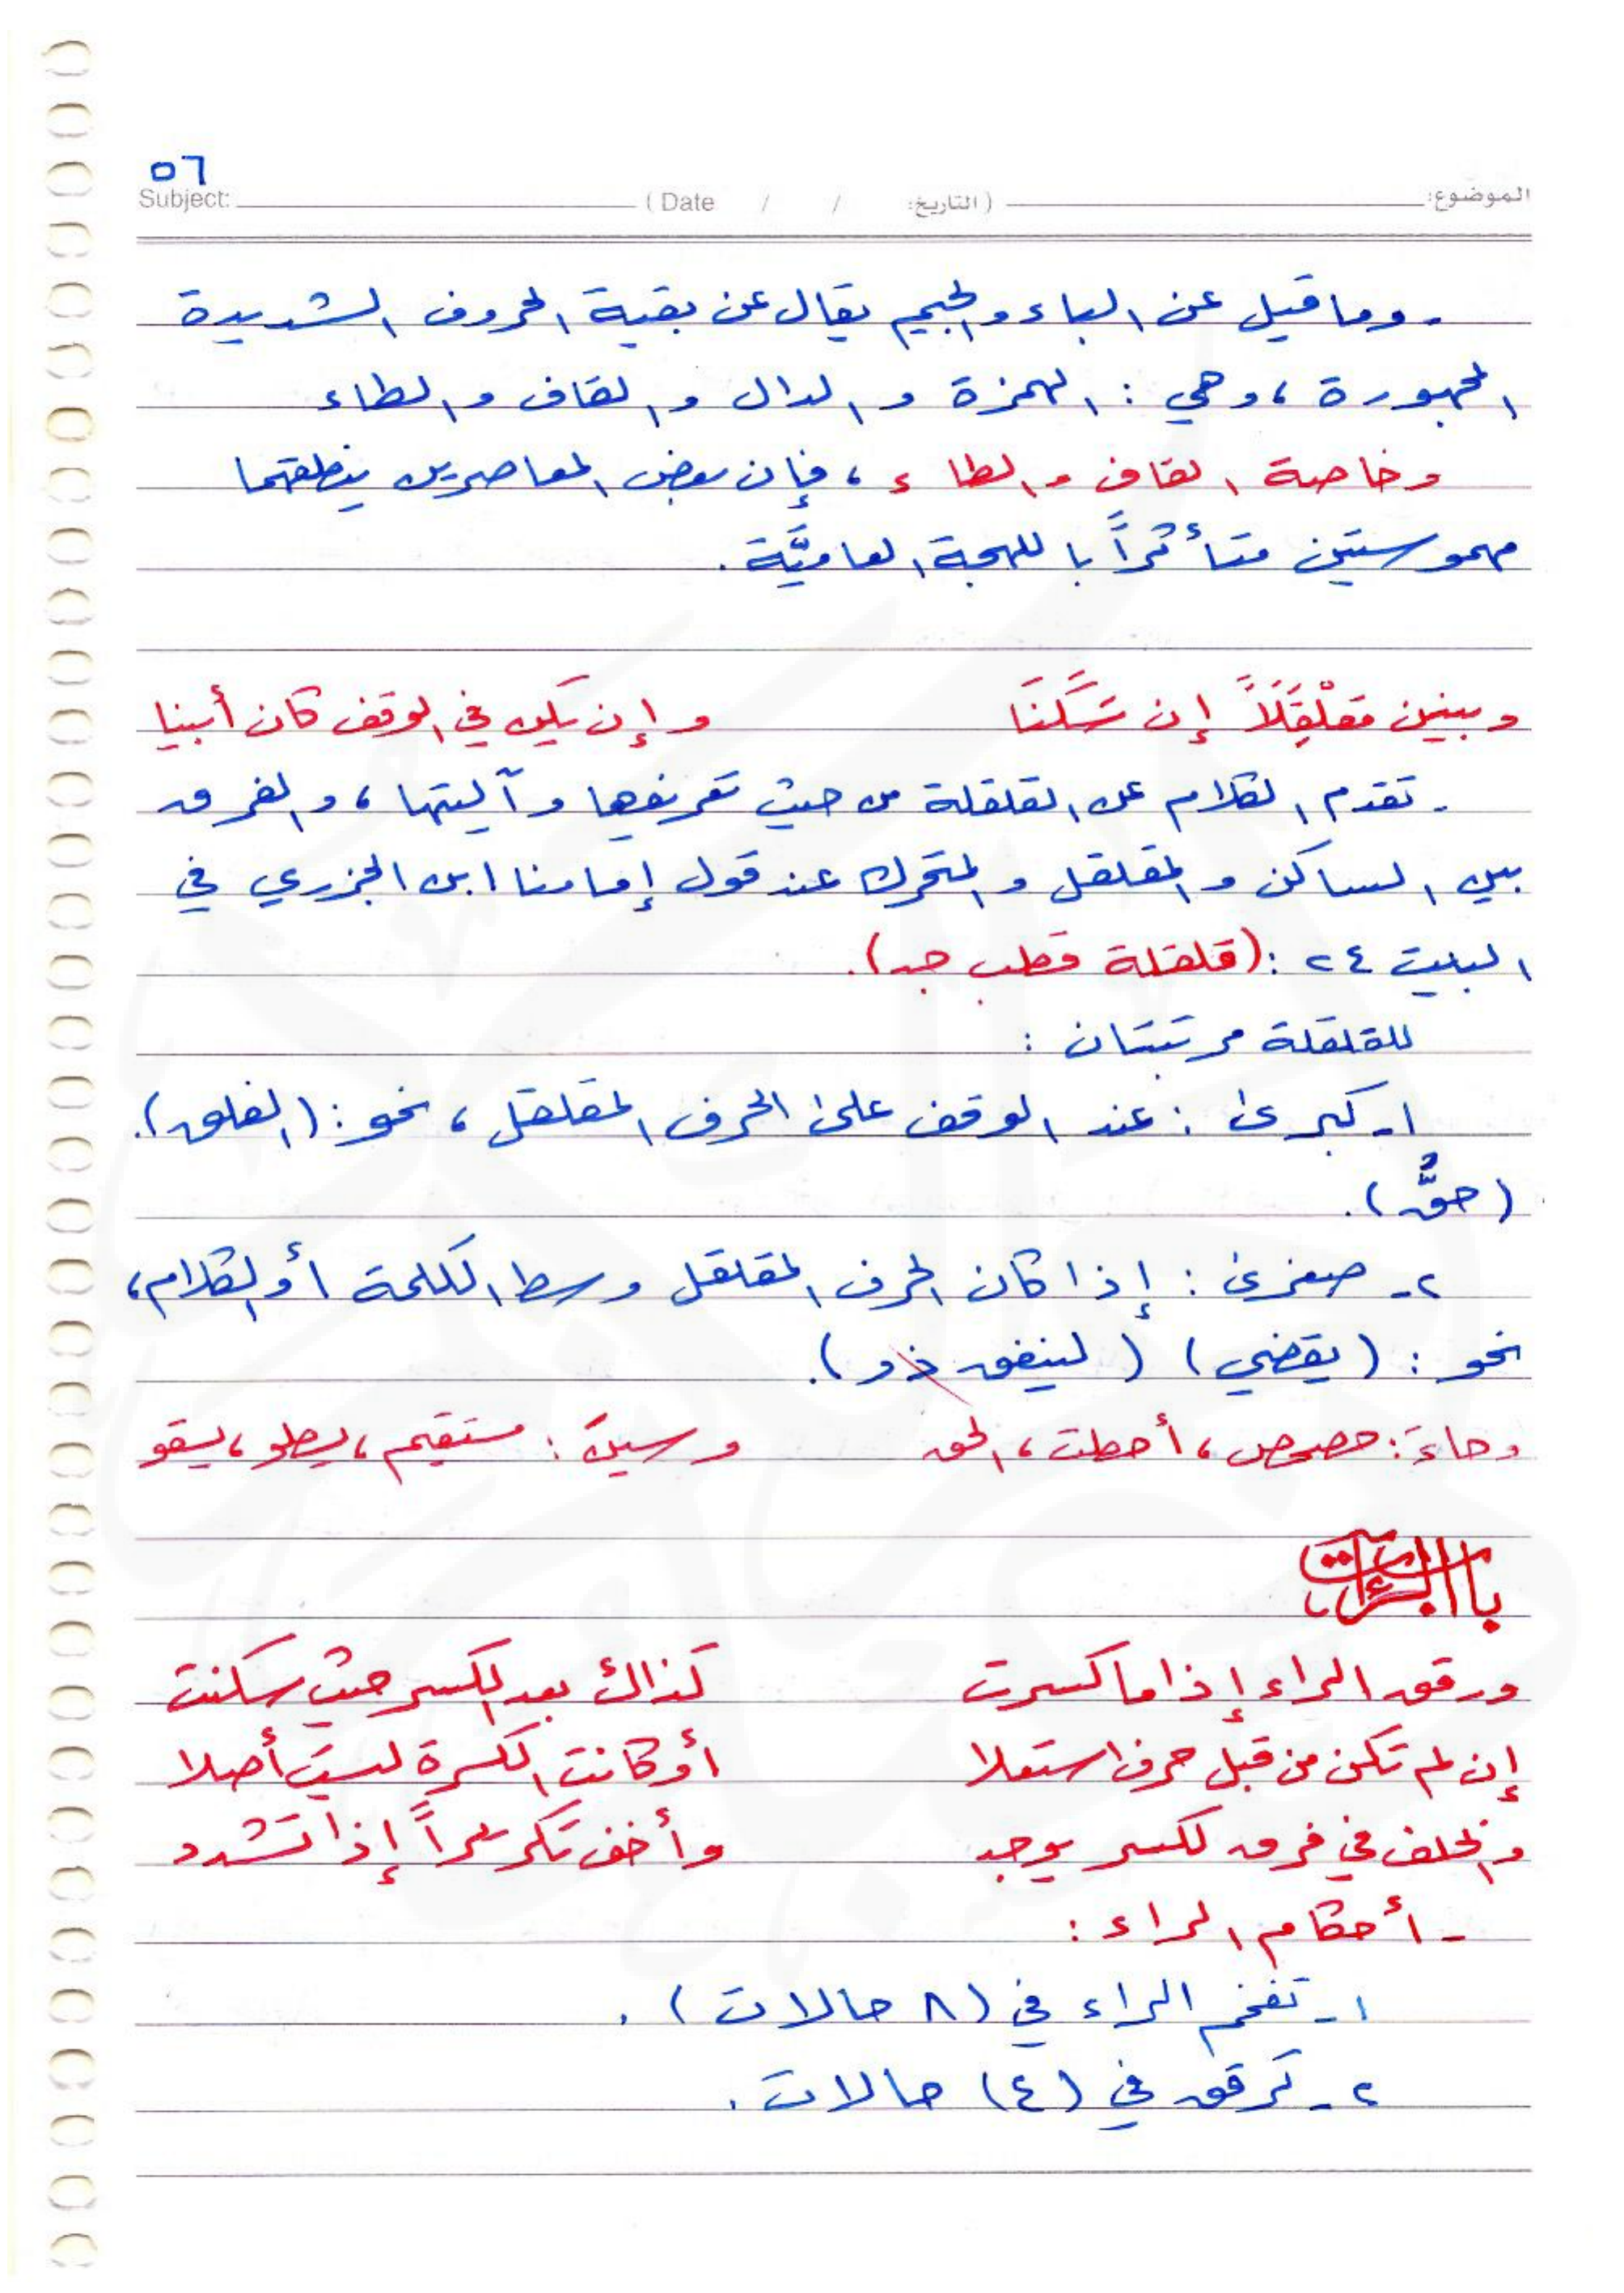 ٥٦
Subject: (Date / / التاريخ:) الموضوع:
- وما قيل عن الباء والجيم يقال عن بقية الحروف الشديدة
المجهورة ، وهي : الهمزة والدال والقاف والطاء
وخاصة القاف والطاء ، فإن بعض المعاصرين ينطقهما
مهموستين متأثراً باللهجة العاميَّة .
وبينن مقلْقَلاً إن سَكَنَا وإن يكن في الوقف كان أبينا
- تقدم الكلام عن القلقلة من حيث تعريفها وآليتها ، والفرق
بين الساكن والمقلقل والمتحرك عند قول إمامنا ابن الجزري في
البيت ٢٤ : (قلقلة قطب جد) .
للقلقلة مرتبتان :
١- كبرى : عند الوقف على الحرف المقلقل ، نحو : (الفلق) .
(حقٌّ) .
٢- صغرى : إذا كان الحرف المقلقل وسط الكلمة أو الكلام ،
نحو : (يقضي) (لينفق ذو) .
وحاءَ : حصحص ، أحطت ، الحق وسينَ : مستقيم ، يسطو ، يسقو
باب الراءات
ورقق الراء إذا ما كسرت كذاك بعد الكسر حيث سكنت
إن لم تكن من قبل حرف استعلا أو كانت الكسرة ليست أصلا
والخلف في فرق لكسر يوجد وأخف تكريراً إذا تشدد
- أحكام الراء :
١- تفخم الراء في (٨ حالات) .
٢- ترقق في (٤) حالات .